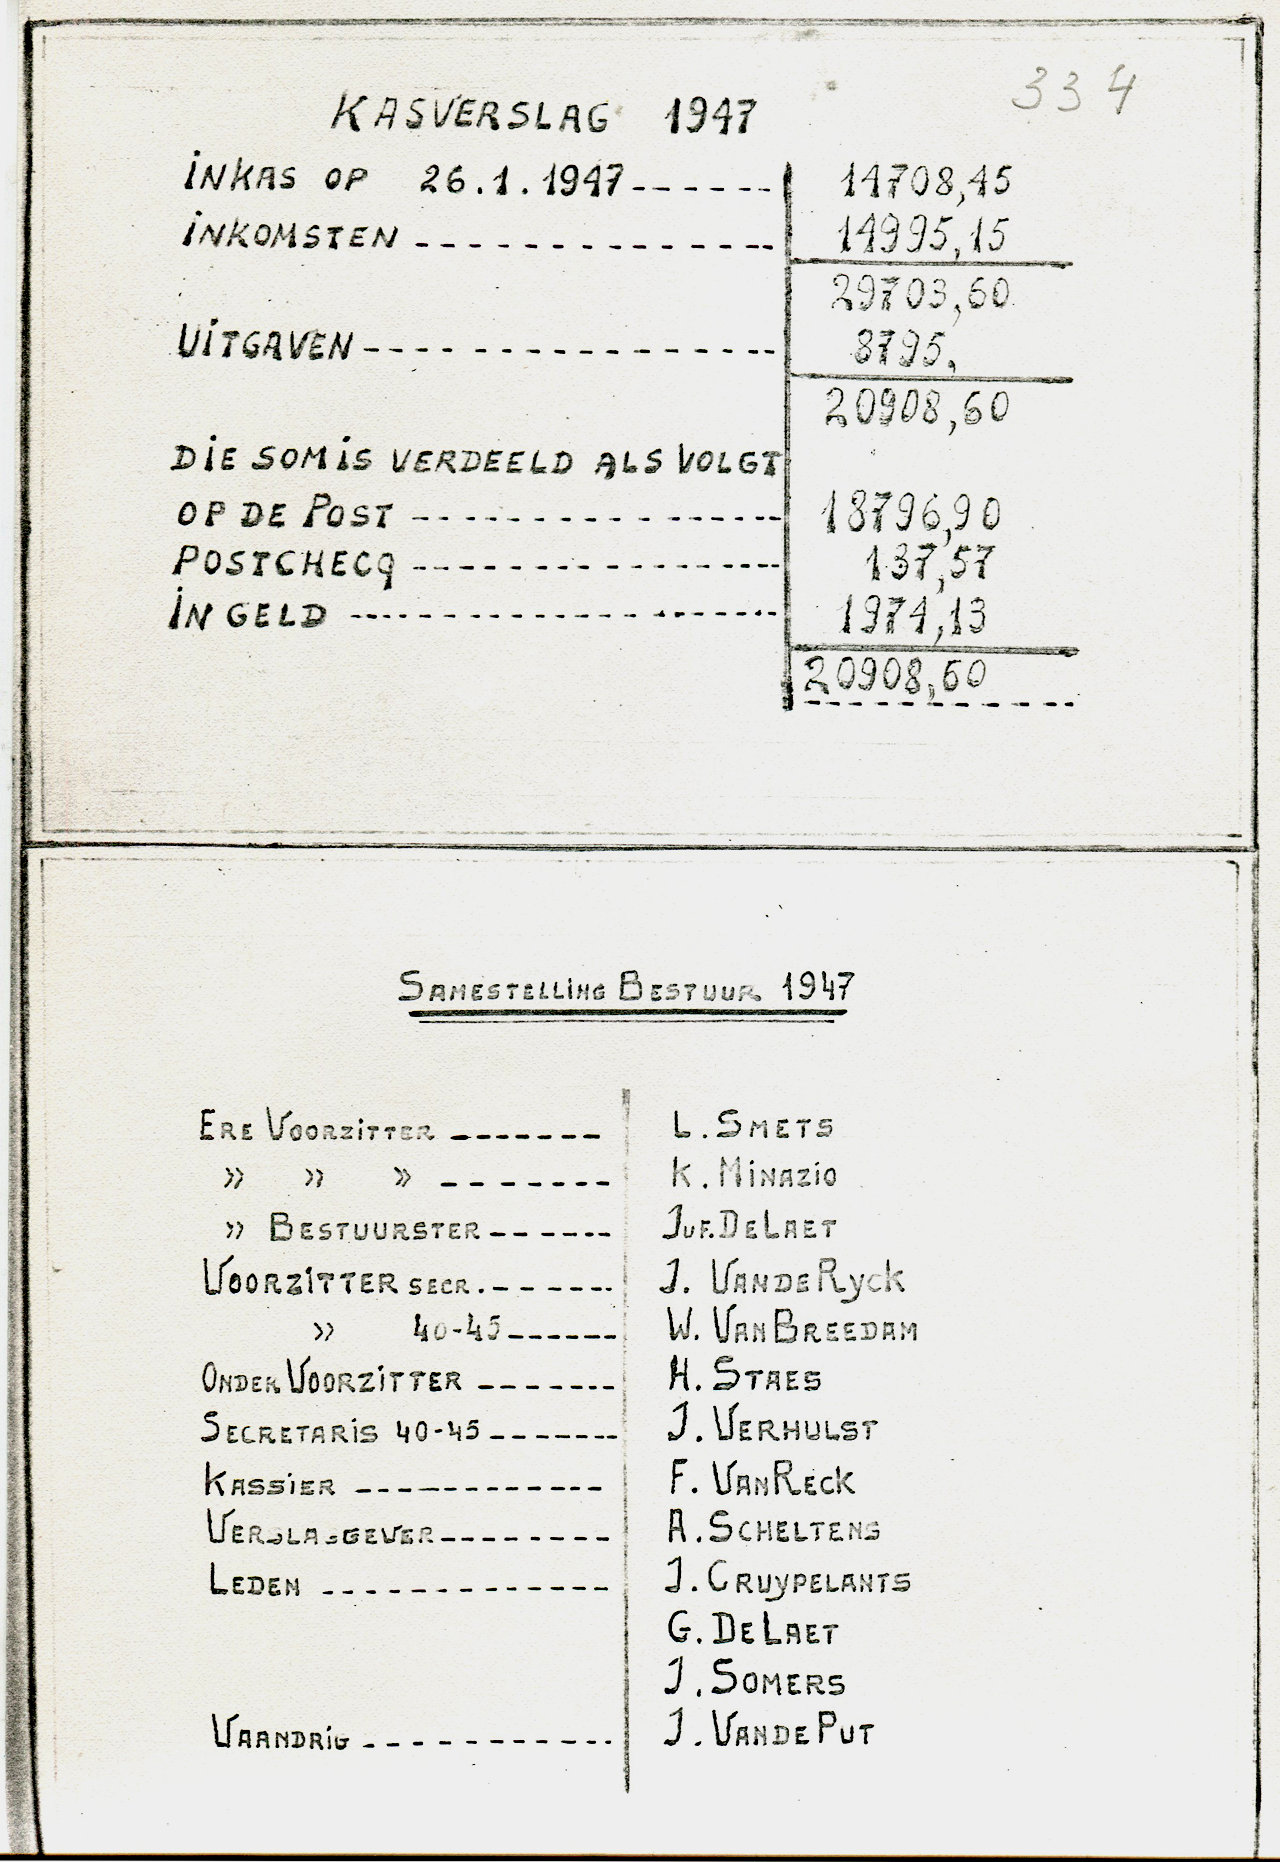 334
KASVERSLAG 1947
INKAS OP 26.1.1947------ 14708,45
INKOMSTEN -------------- 14995,15
29703,60
UITGAVEN ---------------- 8795,
20908,60
DIE SOM IS VERDEELD ALS VOLGT
OP DE POST --------------- 18796,90
POSTCHECQ --------------- 137,57
IN GELD ----------------- 1974,13
20908,60
SAMESTELLING BESTUUR 1947
ERE VOORZITTER ------- L. SMETS
» » » ------- K. MINAZIO
» BESTUURSTER ------ JUF. DE LAET
VOORZITTER SECR. ------ J. VANDE RYCK
» 40-45 ------ W. VAN BREEDAM
ONDER VOORZITTER ------- H. STAES
SECRETARIS 40-45 ------- J. VERHULST
KASSIER ------------ F. VAN RECK
VERSLAGGEVER -------- A. SCHELTENS
LEDEN ------------- J. CRUYPELANTS
G. DE LAET
J. SOMERS
VAANDRIG ------------ J. VANDE PUT